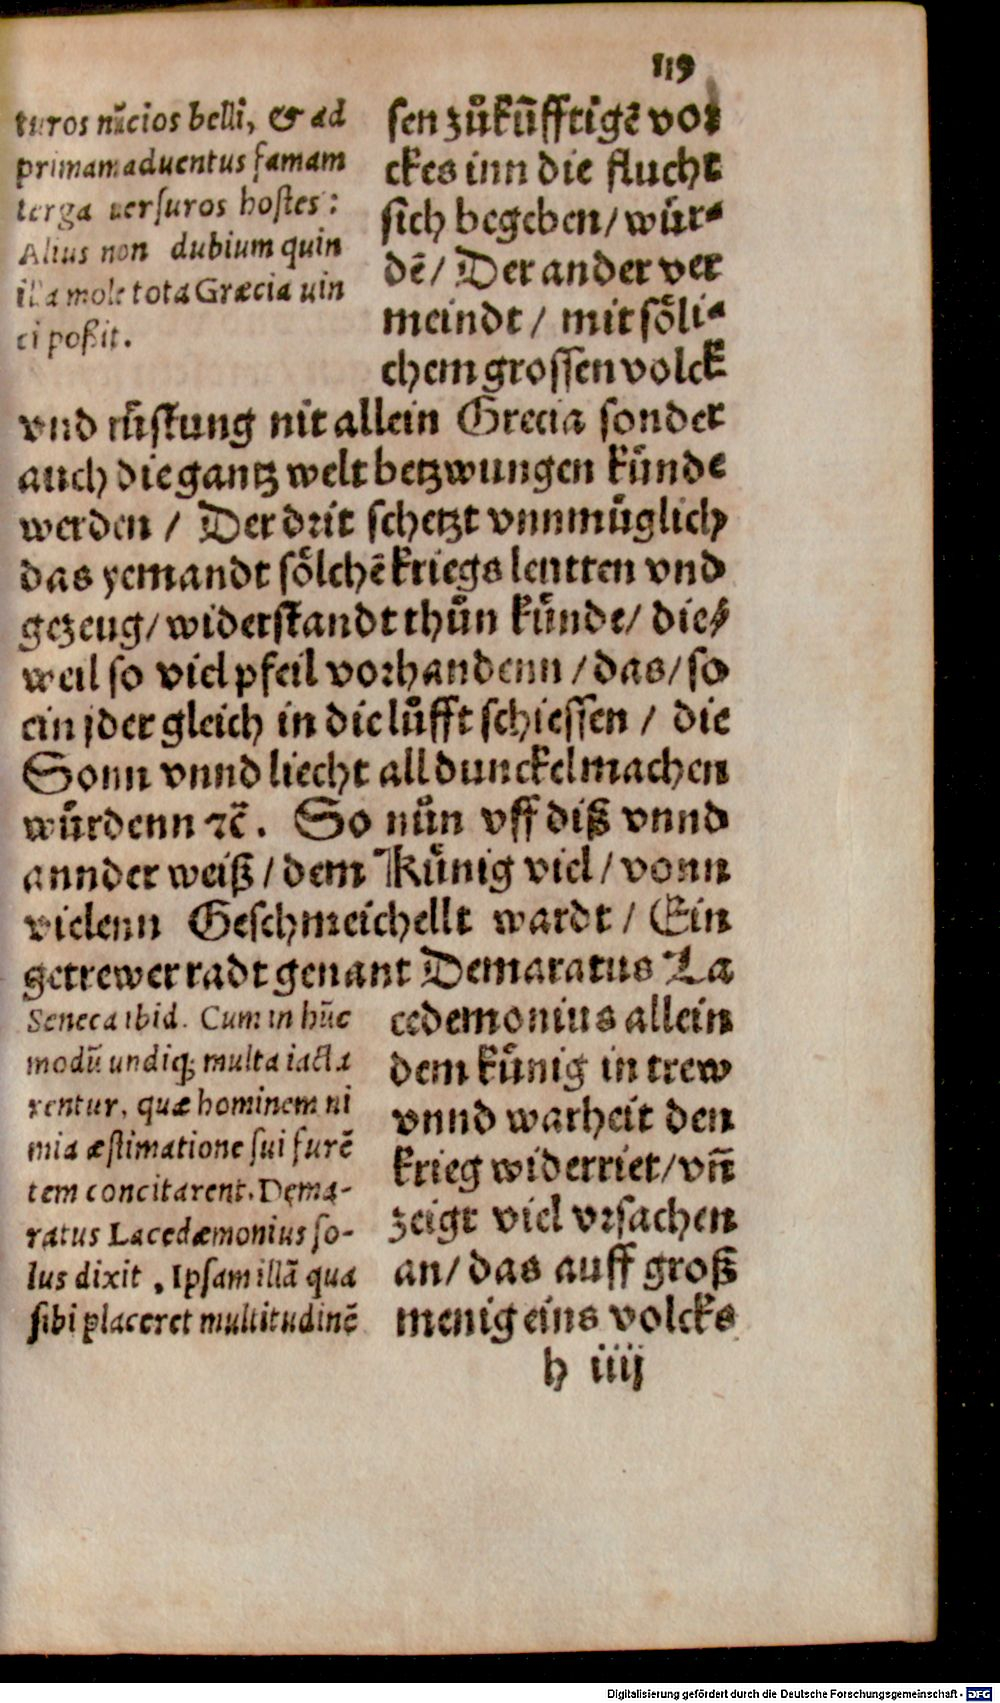 119
turos nũcios belli, & ad
primam aduentus famam
terga uersuros hostes:
Alius non dubium quin
illa mole tota Græcia uin
ci poßit.
sen zůkũfftigẽ vol
ckes inn die flucht
sich begeben / wür⸗
dẽ / Der ander ver
meindt / mit sőli⸗
chem grossen volck
vnd rüstung nit allein Grecia sonder
auch die gantz welt betzwungen künde
werden / Der drit schetzt vnnmüglich
das yemandt sőlchẽ kriegs leutten vnd
gezeug / widerstandt thůn künde / die⸗
weil so viel pfeil vorhandenn / das / so
ein jder gleich in die lüfft schiessen / die
Sonn vnnd liecht all dunckel machen
würdenn ⁊c̃. So nůn vff diß vnnd
annder weiß / dem Künig viel / vonn
vielenn Geschmeichellt wardt / Ein
getrewer radt genant Demaratus La
Seneca ibid. Cum in hũc
modũ undiq; multa iacta
rentur, quæ hominem ni
mia æstimatione sui furẽ
tem concitarent. Dema-
ratus Lacedæmonius so-
lus dixit, Ipsam illã qua
sibi placeret multitudinẽ
cedemonius allein
dem künig in trew
vnnd warheit den
krieg widerriet / vñ
zeigt viel vrsachen
an / das auff groß
menig eins volcks
h iiij
Digitalisierung gefördert durch die Deutsche Forschungsgemeinschaft - DFG